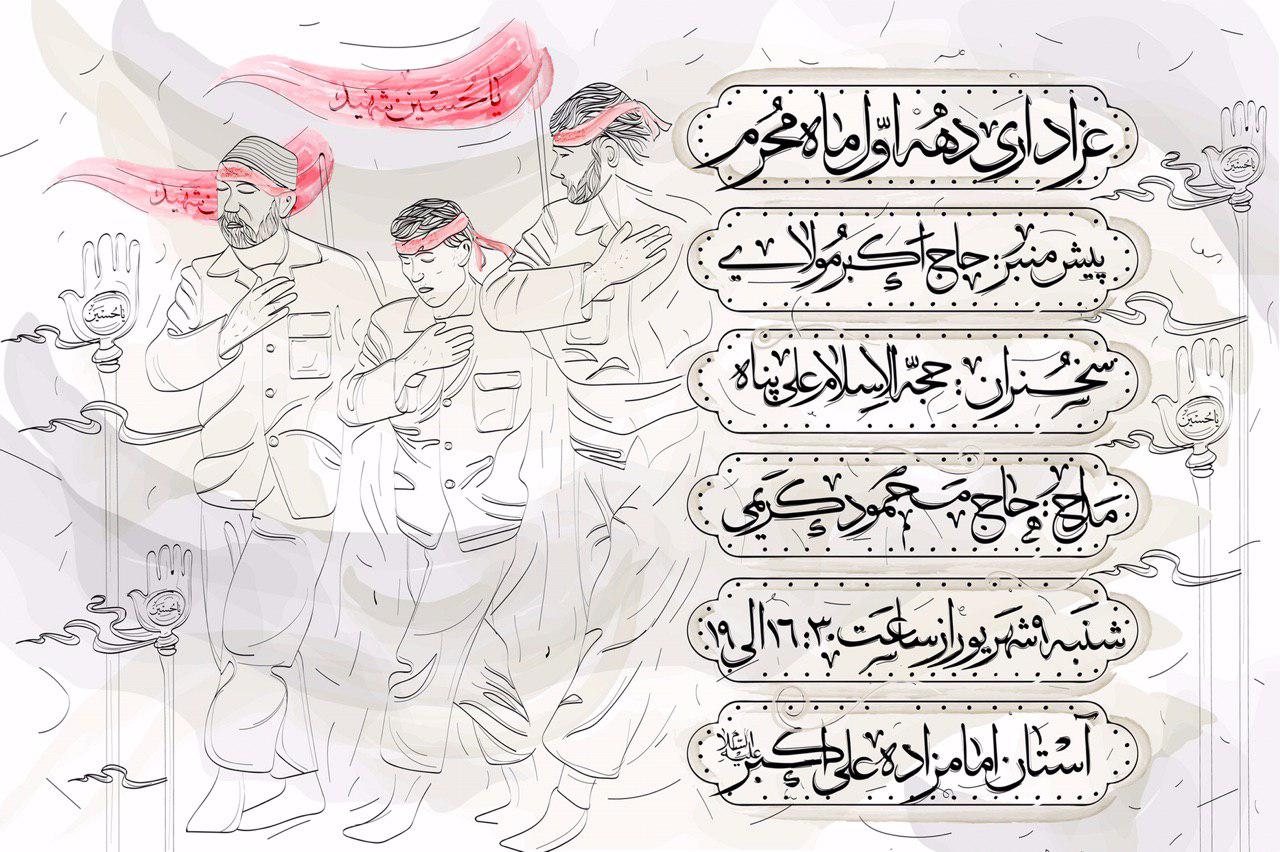 عزاداری دهه اوّل ماه محرم
پیش منبر: حاج اکبر مولایے
سخنران: حجه الاسلام علی پناه
مداح: حاج محمود کریمی
شنبه ۹ شهریور از ساعت ۱۶:۳۰ الی ۱۹
آستان امامزاده علی اکبر علیه السلام
یا حسین شهید
ن شهید
یا حسین
یا حسین
یا حسین
یا حسین